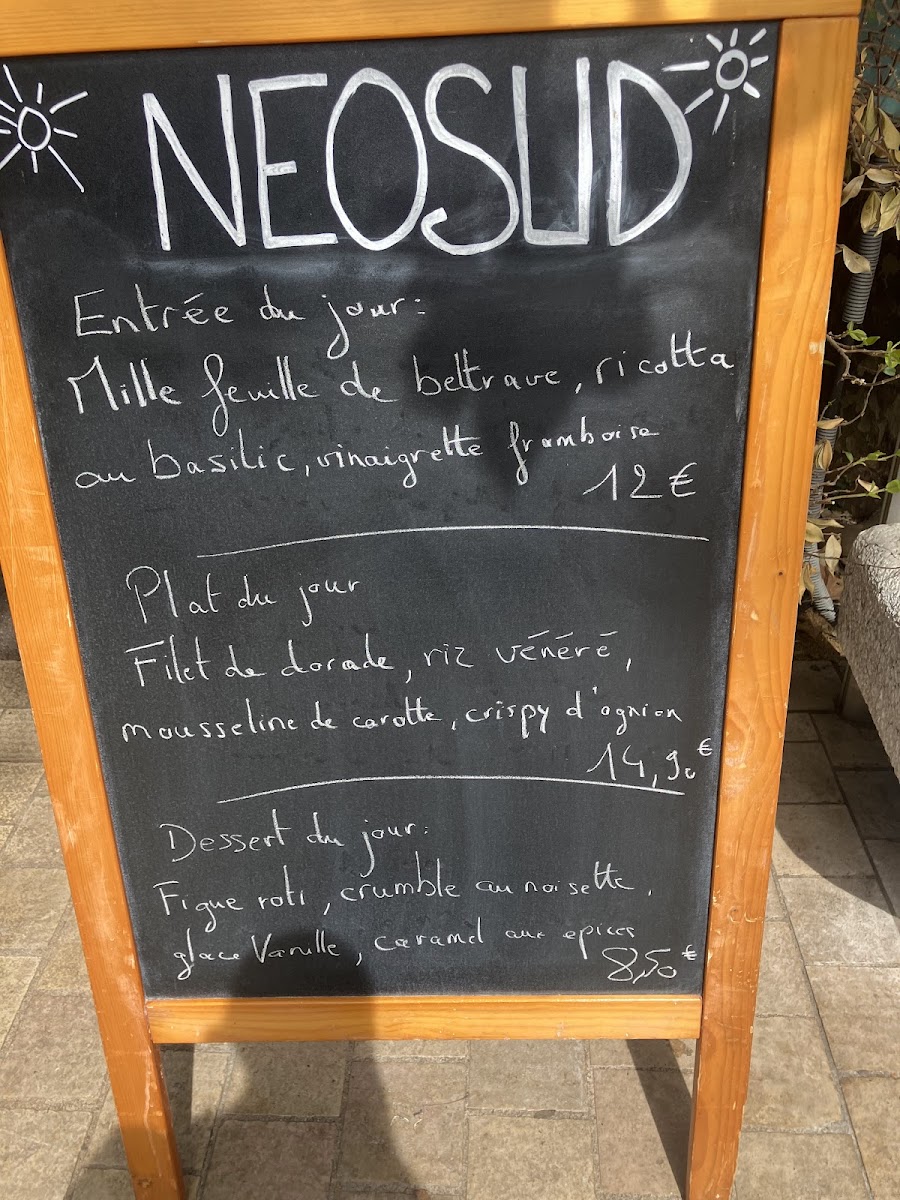 NEOSUD
Entrée du jour:
Mille feuille de bettrave, ricotta
au basilic, vinaigrette framboise
12€
Plat du jour
Filet de dorade, riz vénéré,
mousseline de carotte, crispy d'ognion
14,90€
Dessert du jour:
Figue roti, crumble au noisette,
glace Vanille, caramel aux epices
8,50€